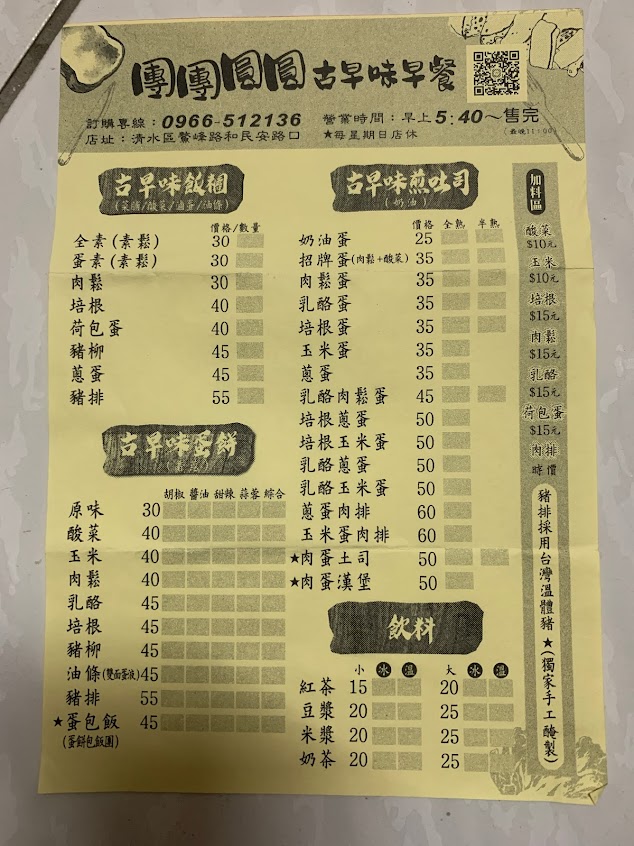 團團圓圓古早味早餐
訂購專線：0966-512136
店址：清水區鰲峰路和民安路口
營業時間：早上5:40～售完
(最晚11:00)
★每星期日店休
古早味飯糰
(菜脯/酸菜/滷蛋/油條)
價格/數量
全素(素鬆) 30
蛋素(素鬆) 30
肉鬆 30
培根 40
荷包蛋 40
豬柳 45
蔥蛋 45
豬排 55
古早味蛋餅
胡椒 醬油 甜辣 蒜蓉 綜合
原味 30
酸菜 40
玉米 40
肉鬆 40
乳酪 45
培根 45
豬柳 45
油條(雙面蛋液) 45
豬排 55
★蛋包飯 45
(蛋餅包飯團)
古早味煎吐司
(奶油)
價格 全熟 半熟
奶油蛋 25
招牌蛋(肉鬆+酸菜) 35
肉鬆蛋 35
乳酪蛋 35
培根蛋 35
玉米蛋 35
蔥蛋 35
乳酪肉鬆蛋 45
培根蔥蛋 50
培根玉米蛋 50
乳酪蔥蛋 50
乳酪玉米蛋 50
蔥蛋肉排 60
玉米蛋肉排 60
★肉蛋土司 50
★肉蛋漢堡 50
飲料
小 冰 溫 大 冰 溫
紅茶 15 20
豆漿 20 25
米漿 20 25
奶茶 20 25
加料區
酸菜
$10元
玉米
$10元
培根
$15元
肉鬆
$15元
乳酪
$15元
荷包蛋
$15元
肉排
時價
豬排採用台灣溫體豬★(獨家手工醃製)